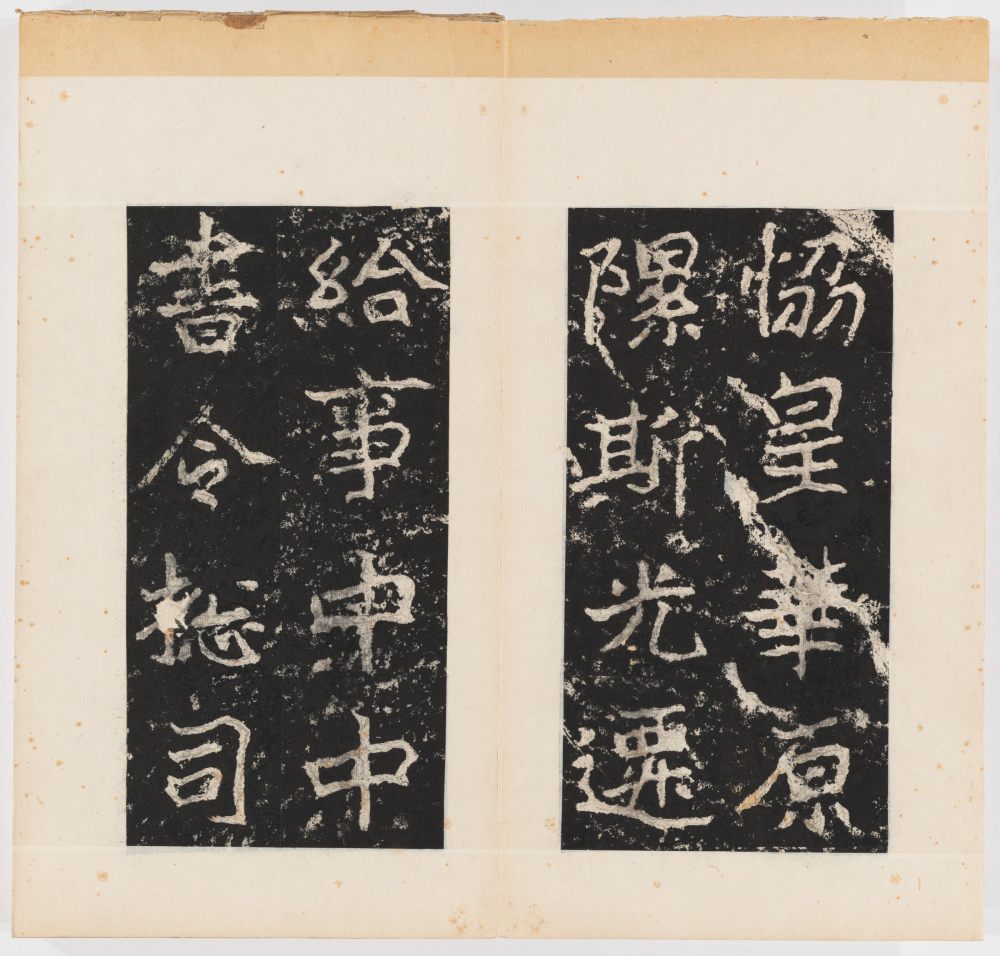 恊皇華原
隰斯光遷
給事中中
書令捴司